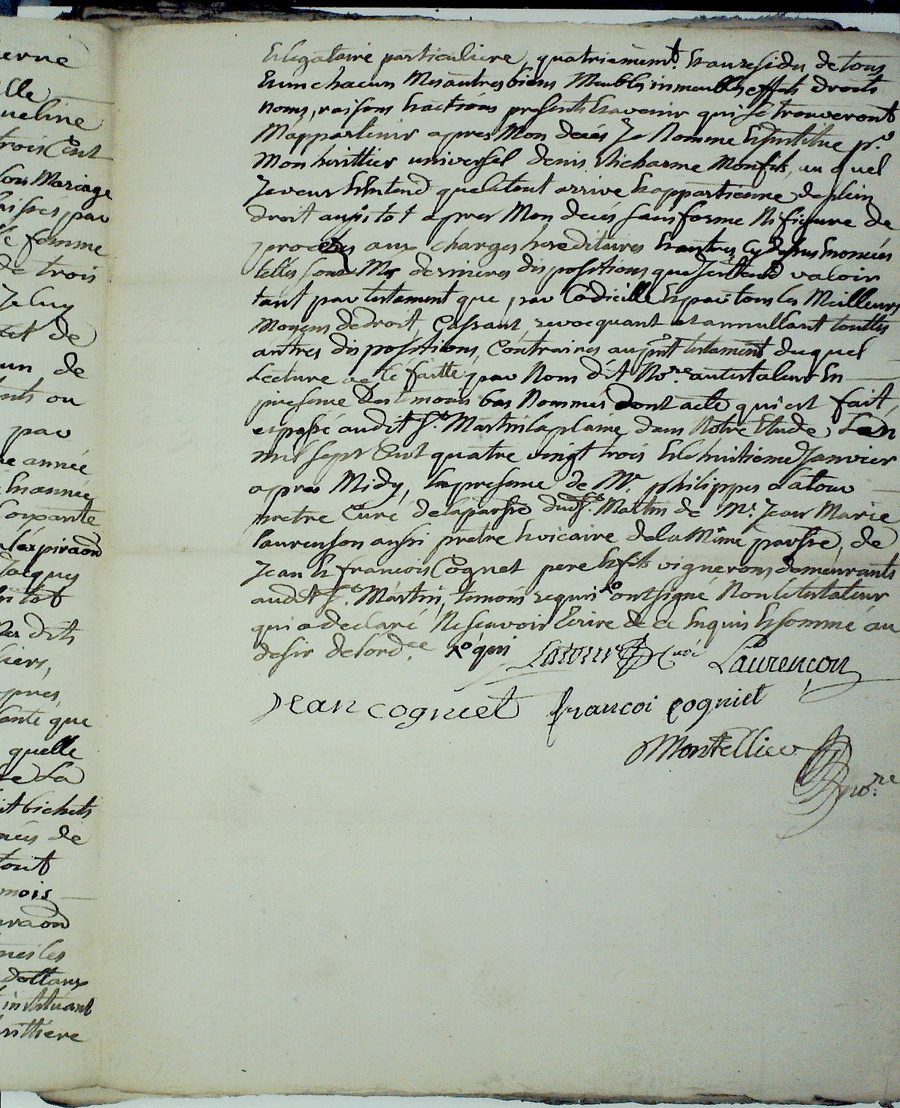 erne
lle
ueline
trois Cent
son Mariage
laissés par
lle femme
de trois
Jeluy
et de
un de
ants ou
par
me année
En année
soixante
Jacques
sitot
dits
liers,
apres,
ante que
quelle
La
bichets
de
tout
mois
les
instituant
heritiere
Et legataire particuliere, quatriement. Et au residu de tous
Et un chacun Mes autres biens Meubles immeubles effets droits
noms, raisons Et actions presents Et avenir qui se trouveront
M'appartenir apres Mon deces Je Nomme Et institue pr.
Mon heritier universel denis Richarme Mon fils, au quel
Je veux Et Entend que le tout arrive Et appartienne de plein
droit aussitot apres Mon deces sans forme Ni figure de
procès aux charges hereditaires Et autres Cy dessus Enoncés
telles sont Mes dernieres dispositions que Je Entend valoir
tant par testament que par Codicille Et par tous les Meilleurs
Moyens de droit, Cassant, revocquant et annullant touttes
autres dispositions, Contraires au pnt testament duquel
Lecture a eté faitte par Nous dit Nore. au testateur En
presence des temoins bas Nommés dont acte qui est fait
et passé audit St. Martin laplaine, dans Notre Etude, L'an
mil sept Cent quatre vingt trois Et le huitieme Janvier
apres Midy, En presence de Mre philippes Latour
pretre Curé de la parsse dudt St. Martin de Mr. Jean Marie
Laurenson aussi pretre Et vicaire de la Même parsse, de
Jean Et francois Cognet pere Et fils vignerons demeurants
audit St. Martin, temoins requis ont signé Non le testateur
qui a declaré Ne sçavoir Ecrire de ce Enquis Et sommé au
desir de lordce. qui Latour Curé Laurençon
Jean cogniet francoi cogniet
Montellier
nore